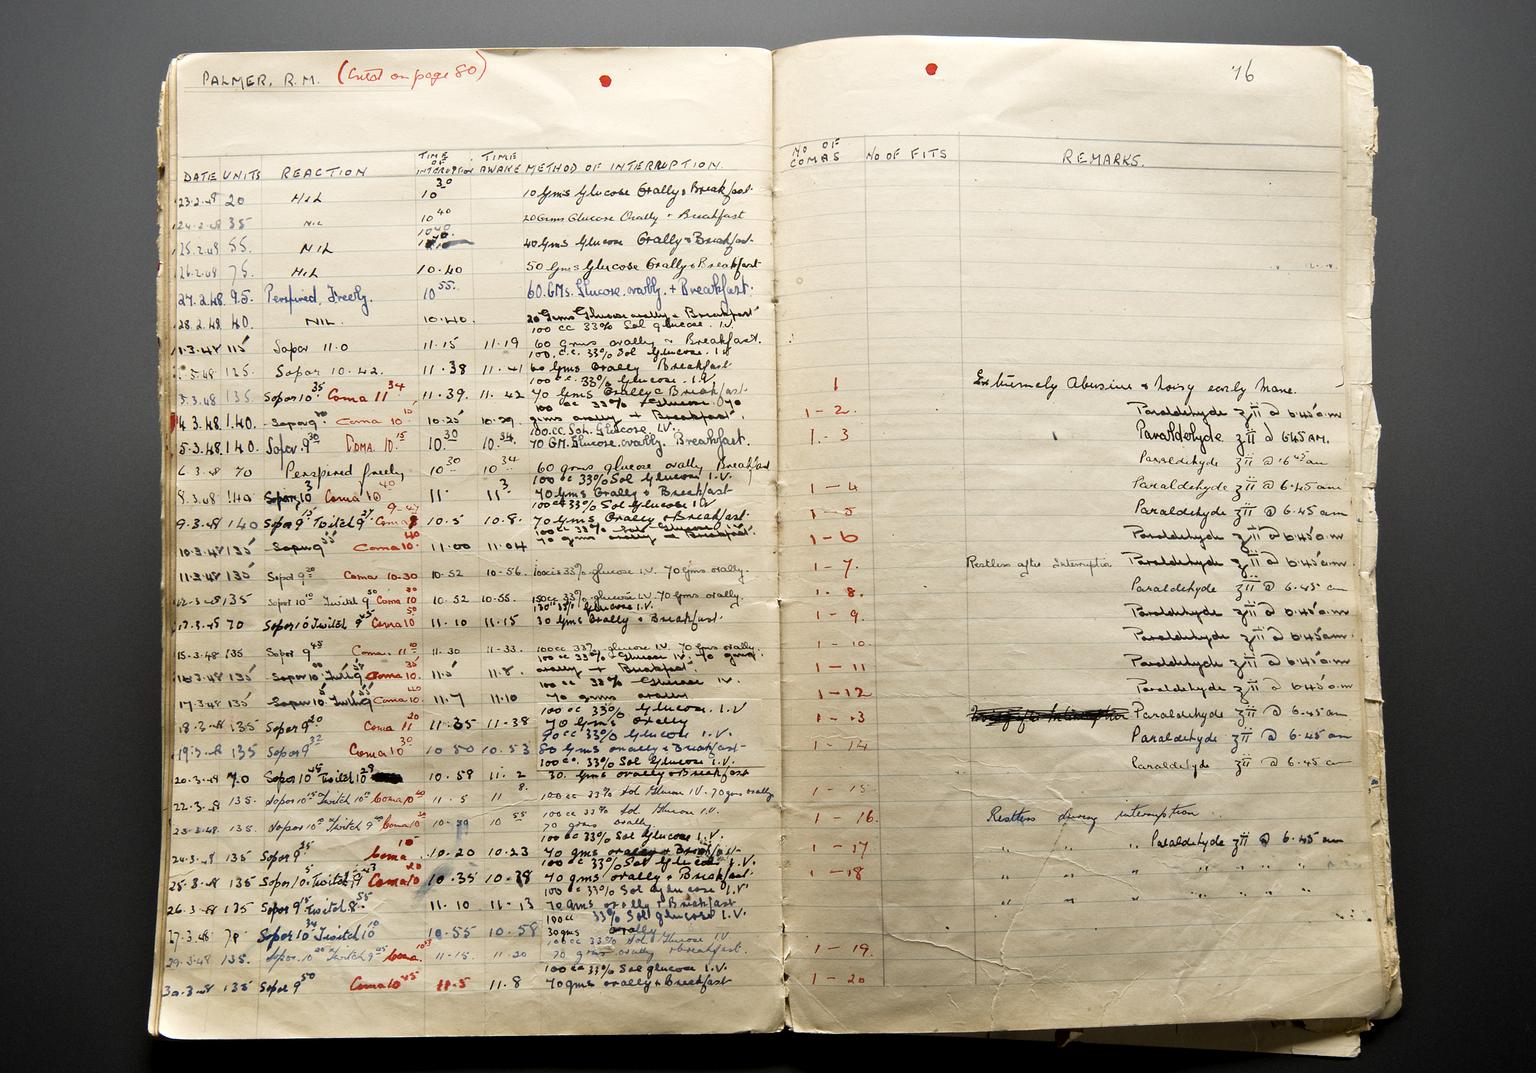 PALMER, R.M. (Cntd on page 80)
76
DATE UNITS REACTION TIME OF INTERRUPTION TIME AWAKE METHOD OF INTERRUPTION. NO OF COMAS NO OF FITS REMARKS.
23.2.48 20 Nil 10 30 10 Gms Glucose Orally & Breakfast
24.2.48 35 NIL 10 40 20 Grms Glucose Orally + Breakfast
25.2.48 55. NIL 10 40. 40 Gms Glucose Orally & Breakfast
26.2.48 75. Nil 10.40 50 Gms Glucose Orally & Breakfast
27.2.48. 95. Perspired Freely. 10 55. 60. GMs. Glucose. orally. + Breakfast.
28.2.48 40. NIL. 10.40. 20 Grms Glucose orally & Breakfast
100 cc 33% Sol glucose. I.V.
1.3.48 115 Sopor 11.0 11.15 11.19 60 grms orally + Breakfast.
100. c.c. 33% Sol Glucose. I.V
125. Sopor 10.42. 11.38 11.41 60 Gms Orally Breakfast
100 c.c. 33% Glucose. I.V.
3.3.48 135 Sopor 10 35 Coma 11 34 11.39. 11.42 70 Gms Orally & Breakfast. 1 Extremely Abusive & Noisy early mane.
100 cc 33% Glucose. 70
4.3.48. 140. Sopor 9 Coma 10 10.25 10.29. gms orally + Breakfast. 1-2. Paraldehyde ʒii @ 6.45 a.m
100.cc. Sol. Glucose I.V.
5.3.48. 140. Sopor. 9 30 Coma. 10. 15 10 30 10 34. 70 GM. Glucose. orally. Breakfast. 1.-3 Paraldehyde ʒii @ 645 AM.
6.3.48 70 Perspired freely 10 30 10 34 60 grms glucose orally Breakfast Paraldehyde ʒii @ 6 45 am
100 cc 33% Sol Glucose I.V.
8.3.48 140 Sopor 10 3 Coma 10 40 11. 11 3 70 Gms Orally & Breakfast 1-4 Paraldehyde ʒii @ 6.45 am
100 cc 33% Sol Glucose I.V
9.3.48 140 Sopor 9 15 Twitch 9 27 Coma 10.5 10.8. 70 Gms Orally & Breakfast. 1-5 Paraldehyde ʒii @ 6.45 am
100 cc 33% Sol Glucose IV
10.3.48 135 Sopor 9 55 Coma 10. 40 11.00 11.04 70 gms orally & Breakfast. 1-6 Paraldehyde ʒii @ 6.45 a.m
11.3.48 135 Sopor 9 20 Coma 10-30 10-52 10-56. 100cc 33% glucose I.V. 70 Gms orally. 1-7. Restless after Interruption Paraldehyde ʒii @ 6.45 a.m.
12-3-48 135 Sopor 10 Twitch 9 30 Coma 10 30 10.52 10.55. 100cc 33% glucose I.V. 70 Gms orally. 1-8. Paraldehyde ʒii @ 6.45 am
33% Glucose I.V.
70 Sopor 10 Twitch 9 45 Coma 10 50 11.10 11.15 30 Gms Orally & Breakfast. 1-9. Paraldehyde ʒii @ 6.45 a.m
15.3.48 135 Sopor 9 45 Coma. 11 11-30 11-33. 100cc 33% glucose I.V. 70 Gms orally. 1-10. Paraldehyde ʒii @ 6.45 am.
100 cc 33% Glucose IV. 70 gms
16.3.48 135 Sopor 10 Coma 10. 35 11.5 11.8. orally + Breakfast. 1-11 Paraldehyde ʒii @ 6.45 a.m
100 cc 33% Glucose IV.
17.3.48 135 Sopor 10 Coma 10. 11.7 11.10 70 gms orally 1-12 Paraldehyde ʒii @ 6.45 a.m
100 cc 33% Glucose I.V
18.3.48 135 Sopor 9 20 Coma 11 20 11.35 11-38 70 Gms orally 1-13 Paraldehyde ʒii @ 6.45 am
33% Glucose I.V.
19.3.48 135 Sopor 9 32 Coma 10 30 10 50 10.53 80 Gms orally & Breakfast 1-14 Paraldehyde ʒii @ 6.45 am
100 cc. 33% Sol Glucose I.V.
20.3.48 70 Sopor 10 45 Twitch 10 10.58 11.2 30. Gms orally & Breakfast Paraldehyde ʒii @ 6.45 am
22.3.48 135. Sopor 10 Twitch 10 Coma 10 11.5 11 8. 100 cc 33% Sol Glucose I.V. 70 gms orally 1-15
100 cc 33% Sol Glucose I.V.
23-3-48. 135. Sopor 10 Twitch 9 Coma 10 10 55 70 grms orally 1-16. Restless during interruption
100 cc 33% Sol Glucose I.V.
24.3.48 135 Sopor 9 Coma 10 10.20 10.23 70 gms orally & Breakfast 1-17 " " " Paraldehyde ʒii @ 6.45 am
100 cc 33% Sol Glucose I.V.
25.3.48 135 Sopor 10. Twitch 9 Coma 10 10.35 10.38 70 gms orally & Breakfast. 1-18 " " " " " " "
100 cc 33% Sol glucose I.V
26.3.48 135 Sopor 9 Twitch 8 55 11.10 11-13 70 gms orally & Breakfast " " " " " "
100cc 33% Sol glucose I.V
27.3.48 70 Sopor 10 34 Twitch 10 10.55 10.58 30 gms orally
100 cc 33% Sol Glucose I.V
29.3.48 135. Sopor. 10 Twitch 9 Coma. 11.15. 11.20 70 grms orally & breakfast. 1-19.
100 cc 33% Sol glucose I.V.
30.3.48 135 Sopor 9 50 Coma 10 45 11.5 11.8 70 gms orally & Breakfast 1-20